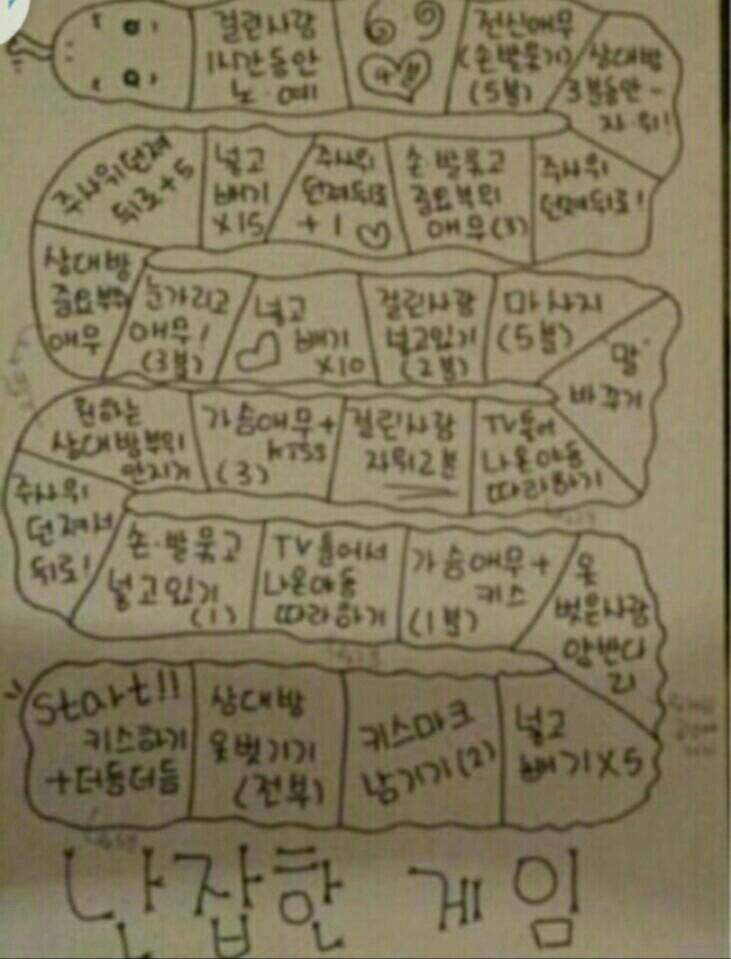 걸린사람
1시간동안
노·예
69
전신애무
(손발묶기)
(5분)
상대방
3분동안
자·위!
주사위던져
뒤로+5
넣고
빼기
x15
주사위
던져뒤로
+1
손·발묶고
중요부위
애무(3)
주사위
던져뒤로!
상대방
중요부위
애무
눈가리고
애무!
(3분)
넣고
빼기
x10
걸린사람
넣고있기
(2분)
마사지
(5분)
"말"
바꾸기
원하는
상대방부위
만지기
가슴애무+
kiss
(3)
걸린사람
자위2분
TV틀어
나온야동
따라하기
주사위
던져서
뒤로!
손·발묶고
넣고있기
(1)
TV틀어서
나온야동
따라하기
가슴애무+
키스
(1분)
옷
벗은사람
start!!
키스하기
+더듬더듬
상대방
옷벗기기
(전부)
키스마크
남기기(2)
넣고
빼기x5
난잡한 게임